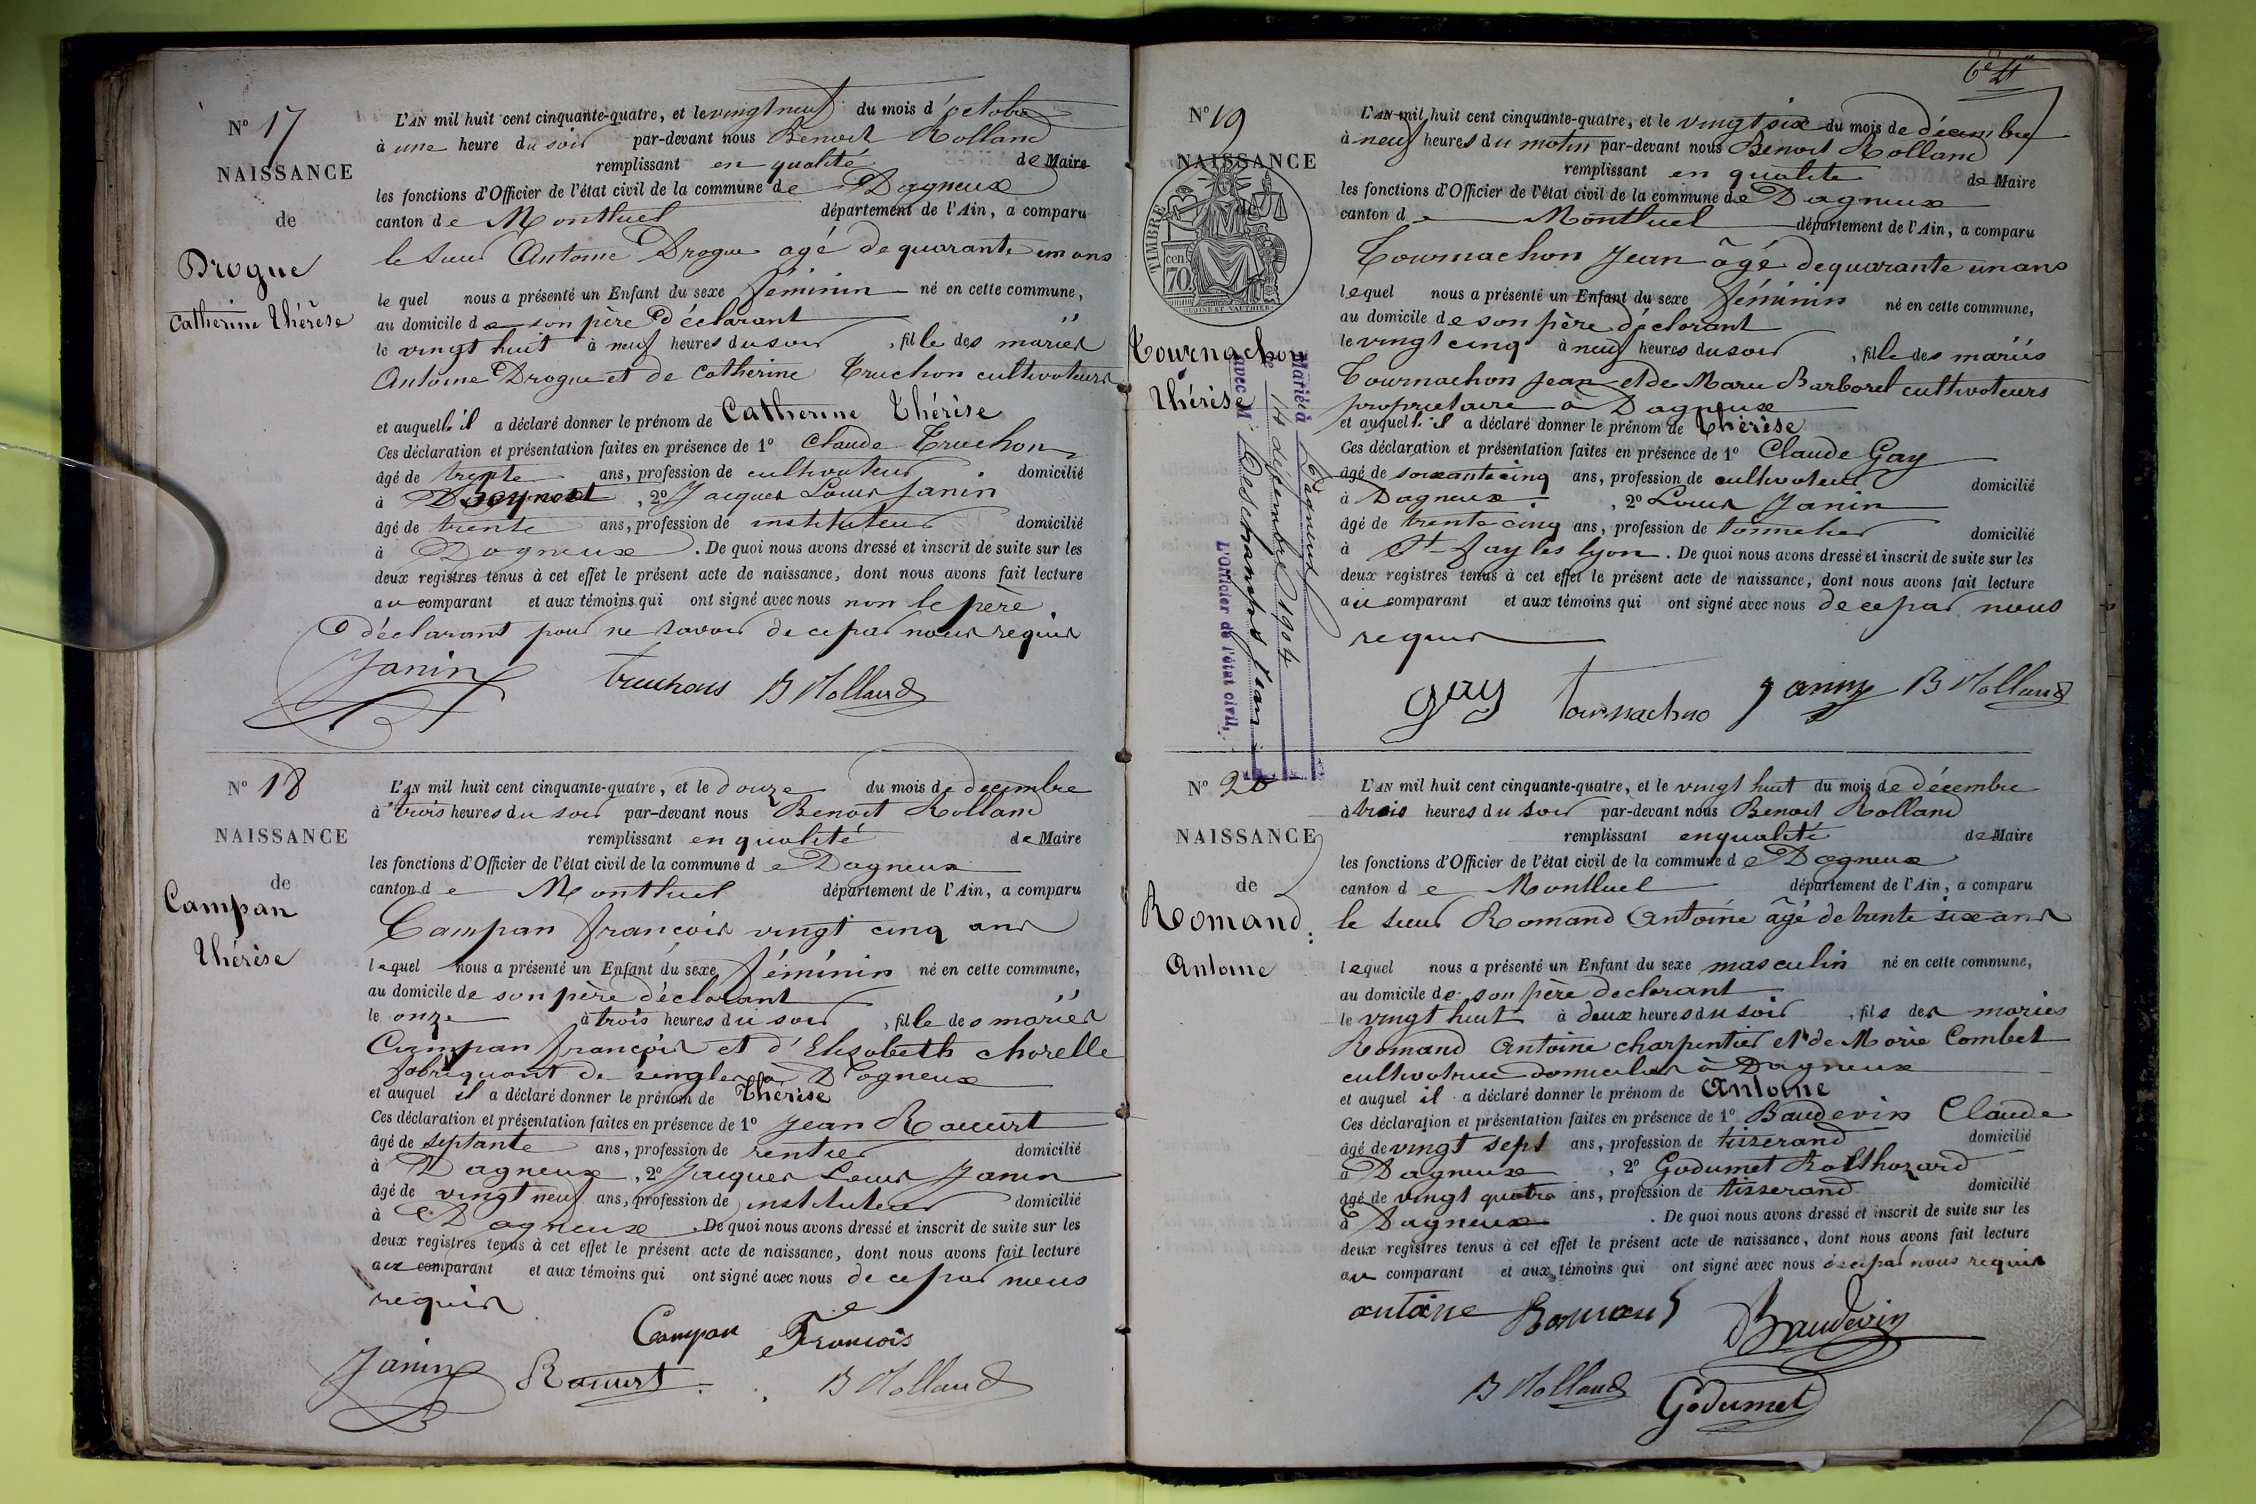 N° 17
NAISSANCE
de
Drogue
Catherine Thérèse
L'AN mil huit cent cinquante-quatre, et le vingt neuf du mois d'octobre
à une heure du soir par-devant nous Benoit Rolland
remplissant en qualité de Maire
les fonctions d'Officier de l'état civil de la commune de Dagneux
canton de Montluel département de l'Ain, a comparu
le sieur Antoine Drogue agé de quarante un ans
lequel nous a présenté un Enfant du sexe féminin né en cette commune,
au domicile de son père déclarant
le vingt huit à neuf heures du soir, fille des mariés
Antoine Drogue et de Catherine Truchon cultivateurs
et auquelle il a déclaré donner le prénom de Catherine Thérèse
Ces déclaration et présentation faites en présence de 1° Claude Truchon
âgé de trente ans, profession de cultivateur domicilié
à, 2° Jacques Louis Janin
âgé de trente ans, profession de instituteur domicilié
à Dagneux. De quoi nous avons dressé et inscrit de suite sur les
deux registres tenus à cet effet le présent acte de naissance, dont nous avons fait lecture
au comparant et aux témoins qui ont signé avec nous non le père
déclarant pour ne savoir de ce par nous requis
Janin truchons B Rolland
N° 18
NAISSANCE
de
Campan
Thérèse
L'AN mil huit cent cinquante-quatre, et le douze du mois de decembre
à trois heures du soir par-devant nous Benoit Rolland
remplissant en qualité de Maire
les fonctions d'Officier de l'état civil de la commune de Dagneux
canton de Montluel département de l'Ain, a comparu
Campan françois vingt cinq ans
lequel nous a présenté un Enfant du sexe féminin né en cette commune,
au domicile de son père déclarant
le onze à trois heures du soir, fille des mariés
Campan françois et d'Elisabeth chorelle
fabriquant de à Dagneux
et auquel il a déclaré donner le prénom de Thérèse
Ces déclaration et présentation faites en présence de 1° Jean Racurt
âgé de septante ans, profession de rentier domicilié
à Dagneux, 2° Jacques Louis Janin
âgé de vingt neuf ans, profession de instituteur domicilié
à Dagneux. De quoi nous avons dressé et inscrit de suite sur les
deux registres tenus à cet effet le présent acte de naissance, dont nous avons fait lecture
au comparant et aux témoins qui ont signé avec nous de ce par nous
requis
Campan François
Janin Racurt B Rolland
N° 19
NAISSANCE
de
TIMBRE
70 cent
Tournachon
Thérèse
Marié à
le 14 décembre 1904
avec M Deschamps
L'Officier de l'état civil,
L'AN mil huit cent cinquante-quatre, et le vingt six du mois de décembre
à neuf heures du matin par-devant nous Benoit Rolland
remplissant en qualité de Maire
les fonctions d'Officier de l'état civil de la commune de Dagneux
canton de Montluel département de l'Ain, a comparu
Tournachon Jean âgé de quarante un ans
lequel nous a présenté un Enfant du sexe féminin né en cette commune,
au domicile de son père déclarant
le vingt cinq à neuf heures du soir, fille des mariés
Tournachon Jean et de Marie Barboret cultivateurs
propriétaire à Dagneux
et auquel il a déclaré donner le prénom de Thérèse
Ces déclaration et présentation faites en présence de 1° Claude Gay
âgé de soixante cinq ans, profession de cultivateur domicilié
à Dagneux, 2° Louis Janin
âgé de trente cinq ans, profession de tonnelier domicilié
à St les lyon. De quoi nous avons dressé et inscrit de suite sur les
deux registres tenus à cet effet le présent acte de naissance, dont nous avons fait lecture
au comparant et aux témoins qui ont signé avec nous de ce par nous
requis
gay Janin B Rolland
N° 20
NAISSANCE
de
Romand
Antoine
L'AN mil huit cent cinquante-quatre, et le vingt huit du mois de décembre
à trois heures du soir par-devant nous Benoit Rolland
remplissant en qualité de Maire
les fonctions d'Officier de l'état civil de la commune de Dagneux
canton de Montluel département de l'Ain, a comparu
le sieur Romand Antoine âgé de trente six ans
lequel nous a présenté un Enfant du sexe masculin né en cette commune,
au domicile de son père declarant
le vingt huit à deux heures du soir, fils des mariés
Romand Antoine charpentier et de Marie Combet
cultivatrice domiciliés à Dagneux
et auquel il a déclaré donner le prénom de Antoine
Ces déclaration et présentation faites en présence de 1° Baudevin Claude
âgé de vingt sept ans, profession de tisserand domicilié
à Dagneux, 2° Godumet
âgé de vingt quatre ans, profession de tisserand domicilié
à Dagneux. De quoi nous avons dressé et inscrit de suite sur les
deux registres tenus à cet effet le présent acte de naissance, dont nous avons fait lecture
au comparant et aux témoins qui ont signé avec nous de ce par nous requis
antoine Romand Baudevin
B Rolland Godumet